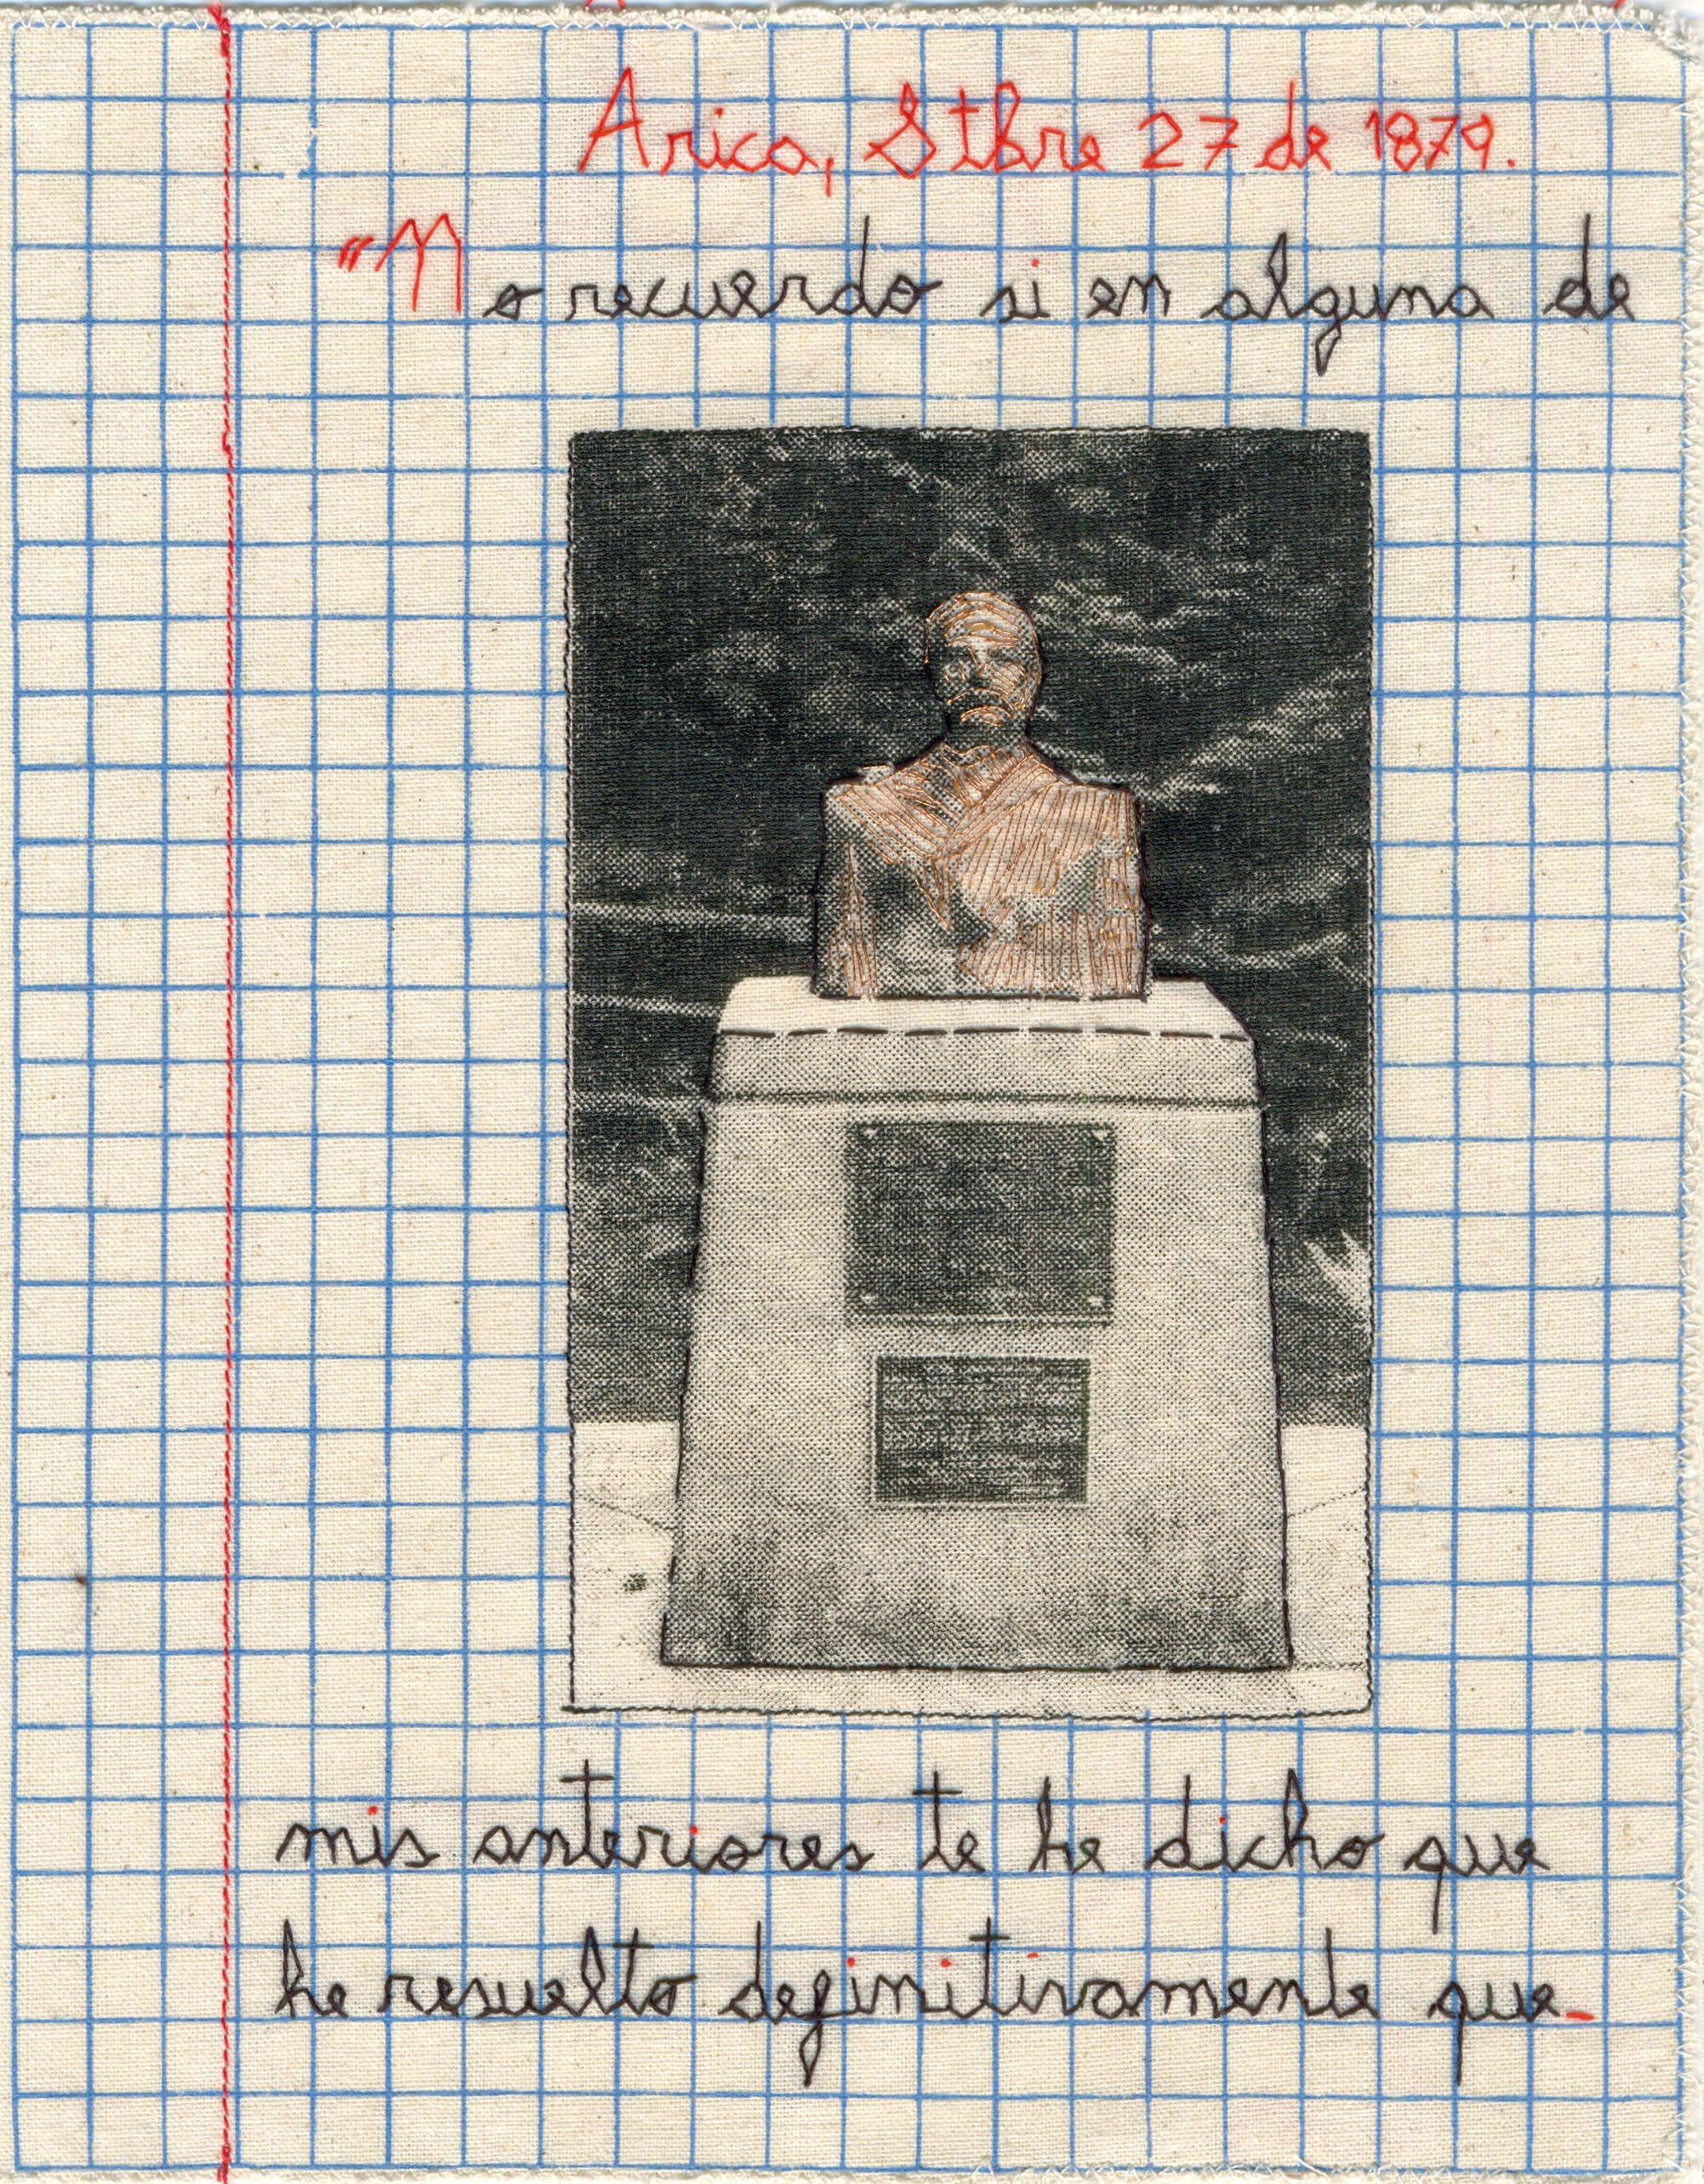 Arica, Stbre 27 de 1879.
"No recuerdo si en alguna de
mis anteriores te he dicho que
he resuelto definitivamente que-